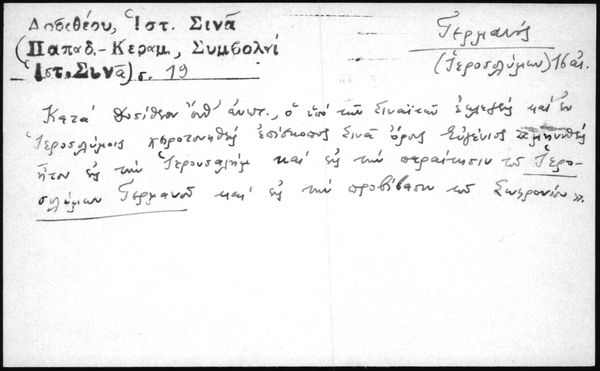 Δοσιθέου, Ἱστ. Σινᾶ
(Παπαδ.-Κεραμ, Συμβολαί
Ἱστ. Σινᾶ) σ. 19
Γερμανός
(Ἱεροσολύμων) 16 αἰ.
Κατά Δοσίθεον ἔνθ' ἀνωτ., ὁ ὑπό τῶν Σιναϊτῶν ἐκλεγείς καί ἐν
Ἱεροσολύμοις χειροτονηθείς ἐπίσκοπος Σινᾶ ὄρους Εὐγένιος
ἦτον εἰς τήν Ἱερουσαλήμ καί εἰς τήν παραίτησιν τοῦ Ἱερο-
σολύμων Γερμανοῦ καί εἰς τήν προβίβασιν τοῦ Σωφρονίου».